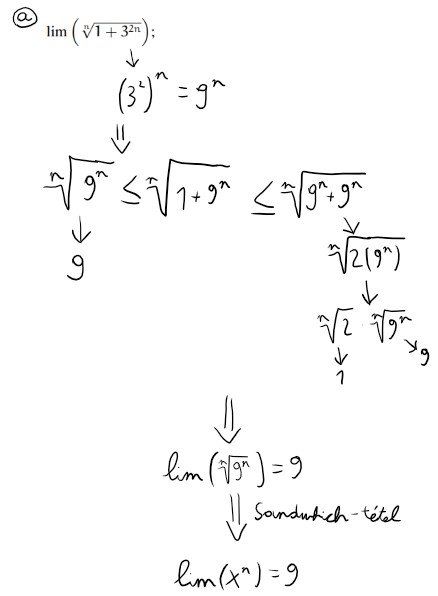 ⓐ lim (ⁿ√(1 + 3²ⁿ));
↓
(3²)ⁿ = 9ⁿ
⇓
ⁿ√(9ⁿ) ≤ ⁿ√(1 + 9ⁿ) ≤ ⁿ√(9ⁿ + 9ⁿ)
↓ ↘
9 ⁿ√(2(9ⁿ))
↓
ⁿ√2 · ⁿ√(9ⁿ)
↓ ↘ 9
1
⇓
lim(ⁿ√(9ⁿ)) = 9
⇓ Sandwhich-tétel
lim(xⁿ) = 9